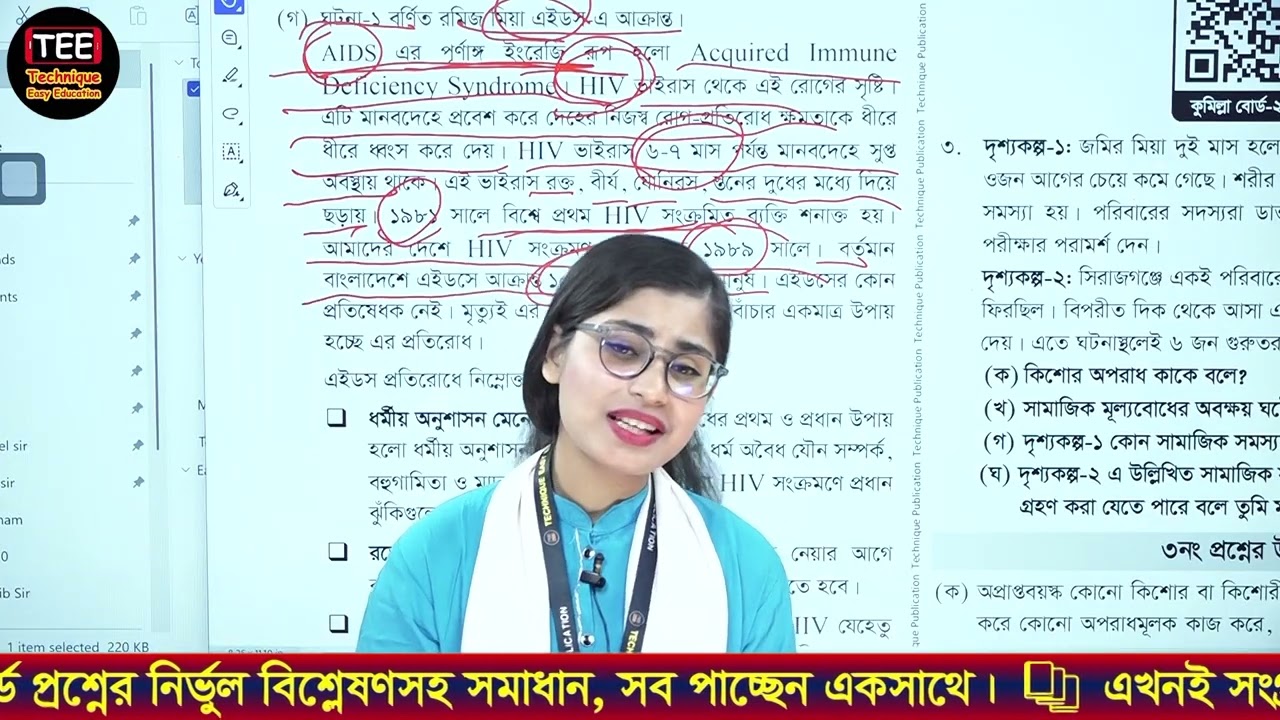 TEE
Technique
Easy Education
(গ) ঘটনা-১ বর্ণিত রমিজ মিয়া এইডস-এ আক্রান্ত।
AIDS এর পূর্ণাঙ্গ ইংরেজি রূপ হলো Acquired Immune
Deficiency Syndrome। HIV ভাইরাস থেকে এই রোগের সৃষ্টি।
এটি মানবদেহে প্রবেশ করে দেহের নিজস্ব রোগ-প্রতিরোধ ক্ষমতাকে ধীরে
ধীরে ধ্বংস করে দেয়। HIV ভাইরাস ৬-৭ মাস পর্যন্ত মানবদেহে সুপ্ত
অবস্থায় থাকে। এই ভাইরাস রক্ত, বীর্য, যোনিরস, স্তনের দুধের মধ্যে দিয়ে
ছড়ায়। ১৯৮১ সালে বিশ্বে প্রথম HIV সংক্রমিত ব্যক্তি শনাক্ত হয়।
আমাদের দেশে HIV সংক্রমণ ১৯৮৯ সালে। বর্তমান
বাংলাদেশে এইডসে আক্রান্ত মানুষ। এইডসের কোন
প্রতিষেধক নেই। মৃত্যুই এর বাঁচার একমাত্র উপায়
হচ্ছে এর প্রতিরোধ।
এইডস প্রতিরোধে
ধর্মীয় অনুশাসন প্রথম ও প্রধান উপায়
হলো ধর্মীয় অনুশাসন ধর্ম অবৈধ যৌন সম্পর্ক,
বহুগামিতা ও HIV সংক্রমণে প্রধান
নেয়ার আগে
হবে।
HIV যেহেতু
Technique Publication Technique Publication Technique Publication Technique Publication
কুমিল্লা বোর্ড-২
৩. দৃশ্যকল্প-১: জমির মিয়া দুই মাস হলো
ওজন আগের চেয়ে কমে গেছে। শরীর
সমস্যা হয়। পরিবারের সদস্যরা
পরীক্ষার পরামর্শ দেন।
দৃশ্যকল্প-২: সিরাজগঞ্জে একই পরিবারে
ফিরছিল। বিপরীত দিক থেকে আসা
দেয়। এতে ঘটনাস্থলেই ৬ জন গুরুতর
(ক) কিশোর অপরাধ কাকে বলে?
(খ) সামাজিক মূল্যবোধের অবক্ষয়
(গ) দৃশ্যকল্প-১ কোন সামাজিক সমস্যা
(ঘ) দৃশ্যকল্প-২ এ উল্লিখিত সামাজিক
গ্রহণ করা যেতে পারে বলে তুমি
৩নং প্রশ্নের
(ক) অপ্রাপ্তবয়স্ক কোনো কিশোর বা কিশোরী
করে কোনো অপরাধমূলক কাজ করে,
el sir
sir
ib Sir
1 item selected 220 KB
র্ড প্রশ্নের নির্ভুল বিশ্লেষণসহ সমাধান, সব পাচ্ছেন একসাথে। এখনই